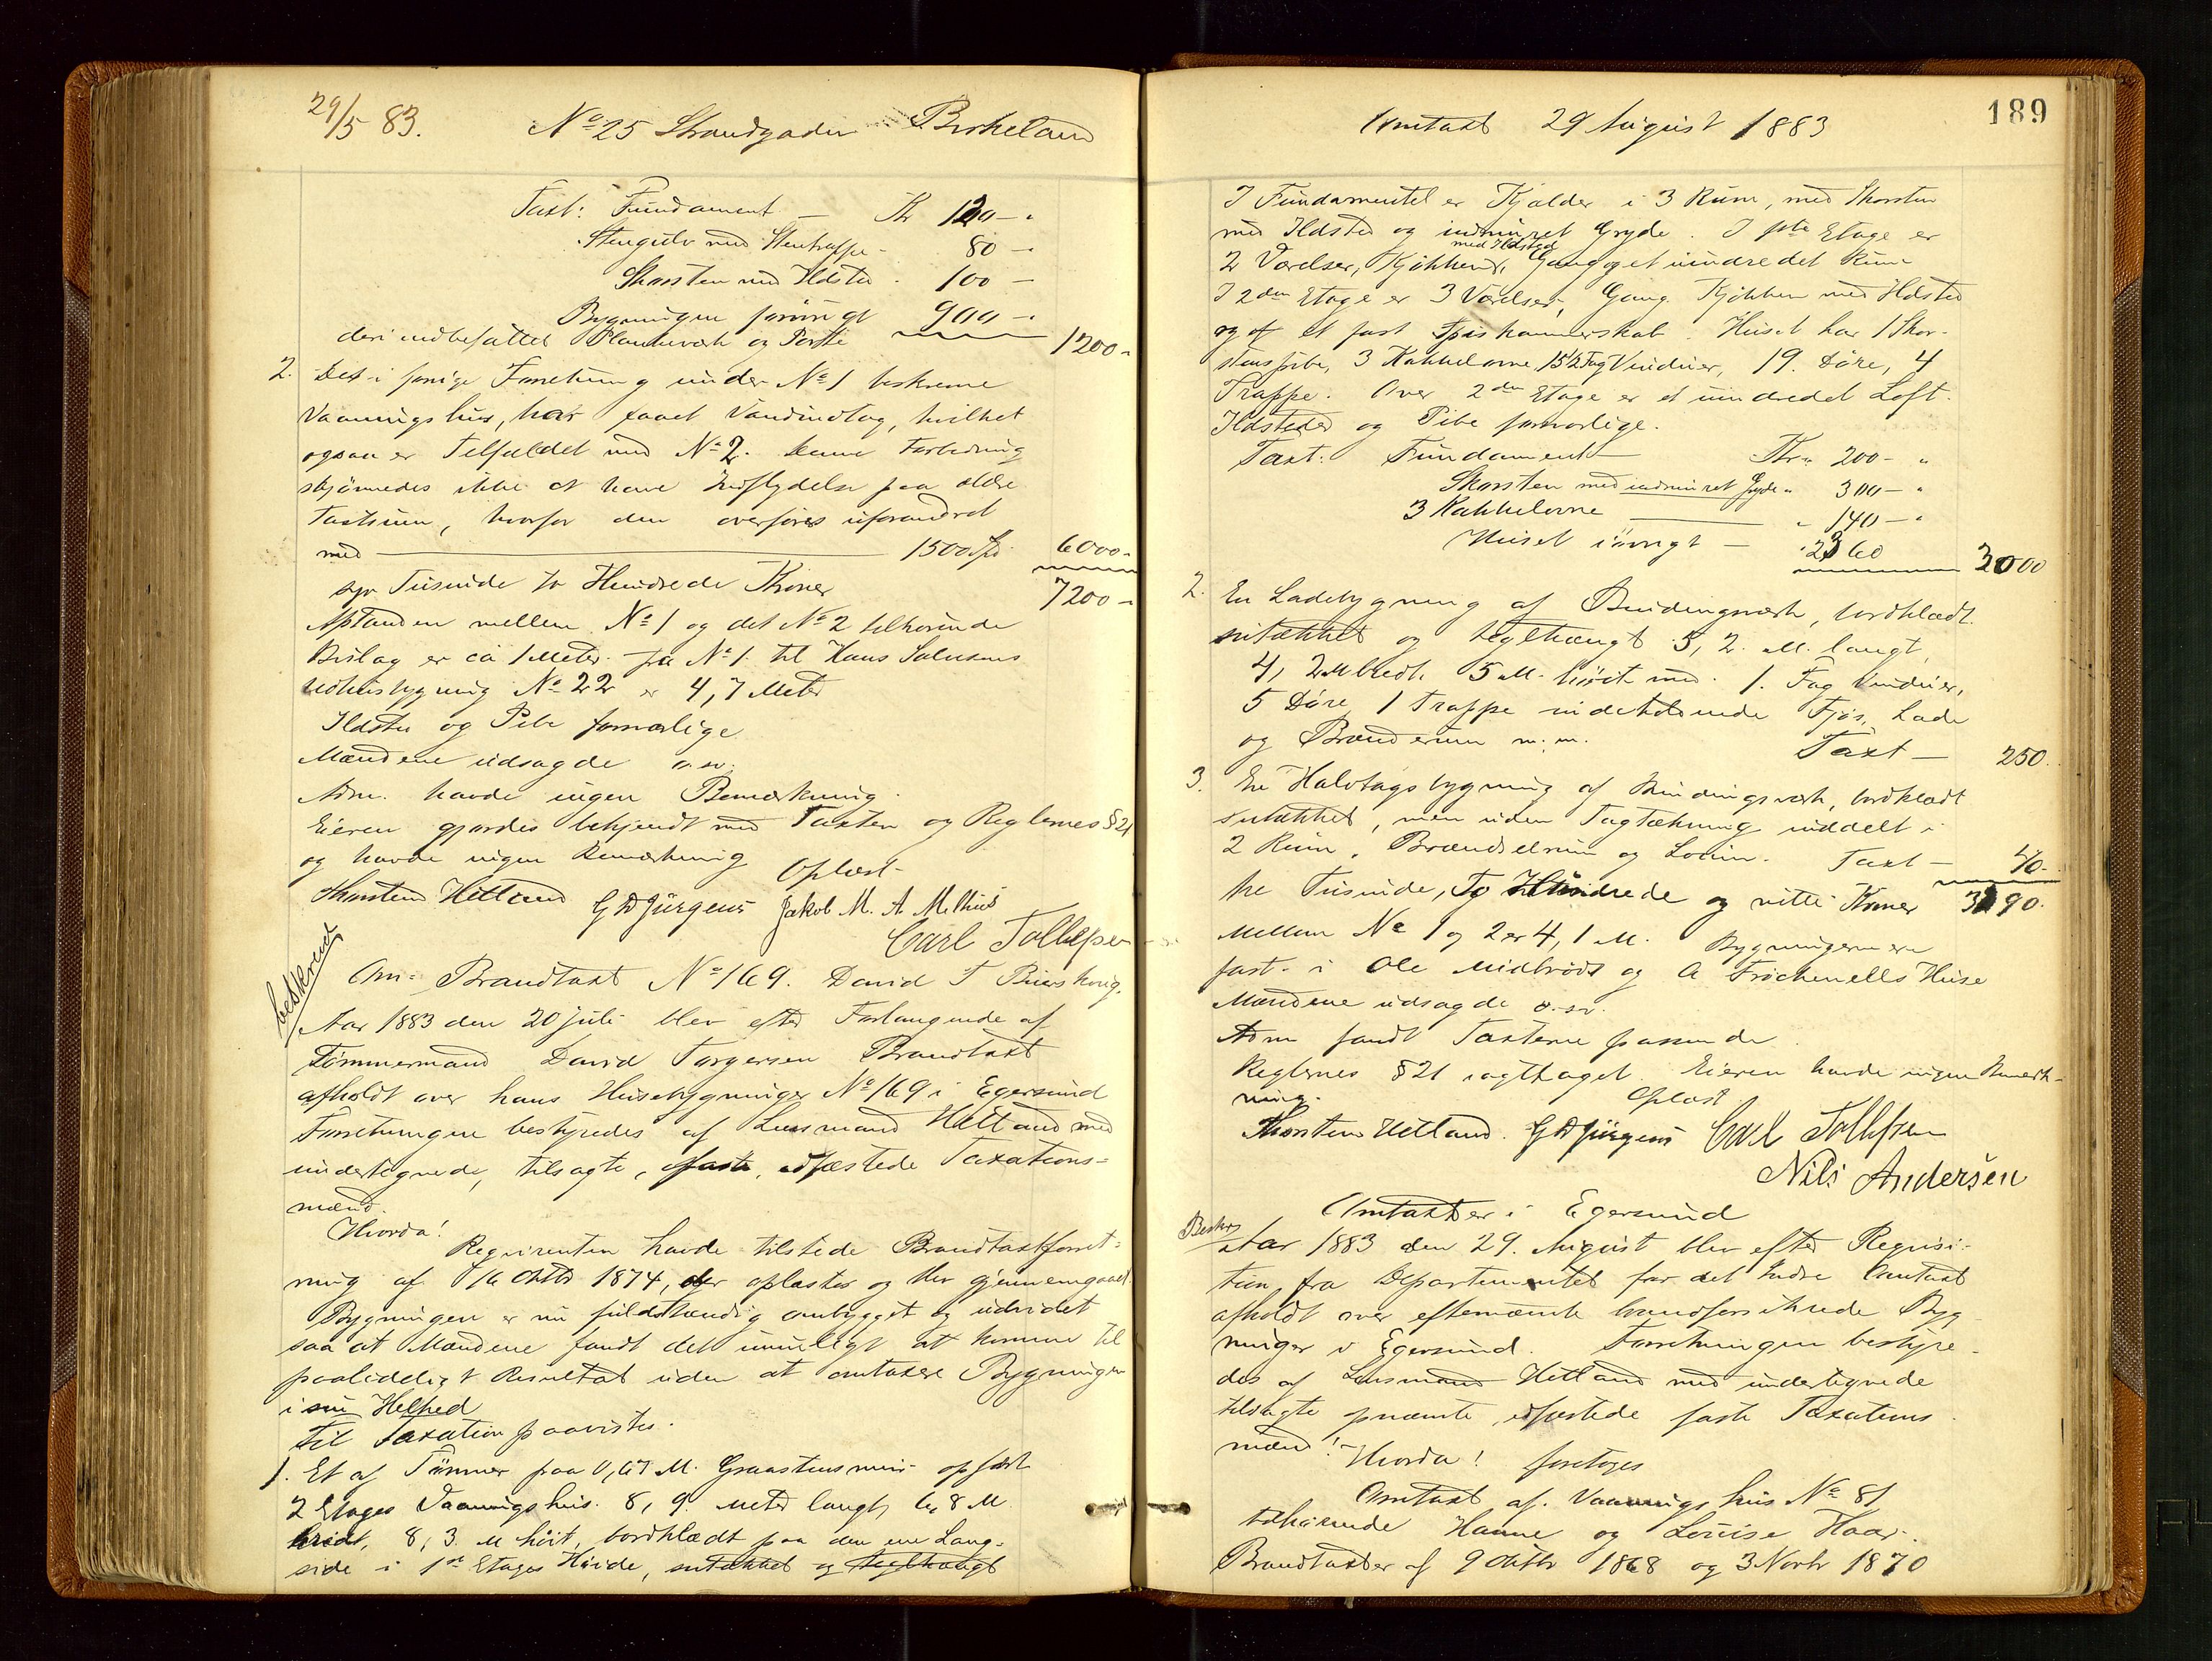 29/5 83. No 25 Strandgaden Birkeland
Taxt: Fundament — Kr 120 -"
Stengulv med Stentrappe - 80 -
Skorsten med Ildsted - 100 -
Bygningen forøvrigt 900 -
deri indbefattet Plankeværk og Porte 1200 -
2. Det i forrige Forretning under No 1 beskrevne
Vaaningshus, har faaet Vandindlag, hvilket
ogsaa er Tilfældet med No 2. Denne Forbedring
skjønnedes ikke at have Indflydelse paa ældre
Taxtsum, hvorfor den overføres uforandret
med — 1500 Spd. 6000 -
syv Tusinde to Hundrede Kroner 7200 -
Afstanden mellem No 1 og det No 2 tilhørende
Bislag er ca 1 Meter fra No 1 til Hans Salvesens
Udhusbygning No 22 er 4,7 Meter
Ildsted og Pibe forsvarlige
Mændene udsagde o. sv.
Adm. havde ingen Bemærkning.
Eieren gjordes bekjendt med Taxten og Reglernes § 21
og havde ingen Bemærkning Oplæst -
Thorsten Hetland G W Jürgens Jakob M. A. Melhus
Carl Tollefsen
beskrevet
Om- Brandtaxt No 169. David T
Aar 1883 den 20 Juli blev efter Forlangende af
Tømmermand David Torgersen Brandtaxt
afholdt over hans Husebygninger No 169 i Egersund
Forretningen bestyredes af Lensmand Hetland med
undertegnede, tilsagte, faste, edfæstede Taxations-
mænd.
Hvorda!
Requirenten havde tilstede Brandtaxtforret-
ning af 16 Oktbr 1874, der oplæstes og blev gjennemgaaet
Bygningen er nu fuldstændig ombygget og udvidet
saa at Mændene fandt det umuligt at komme til
paalideligt Resultat uden at omtaxere Bygningen
i sin Helhed
Til Taxation paavistes.
1. Et af Tømmer paa 0,65 M. Graastensmur opført
2 Etages Vaaningshus. 8,9 Meter langt, 6,8 M
bredt, 8,3 M høit, bordklædt paa den ene Lang-
side i 1ste Etages Høide, sutækket og teglhængt
Omtaxt 29 August 1883 189
I Fundamentet er Kjælder i 3 Rum, med Skorsten
med Ildsted og indmuret Gryde. I 1ste Etage er
2 Værelser, Kjøkken med Ildsted, Gang og et uindredet Rum
I 2den Etage er 3 Værelser, Gang Kjøkken med Ildsted
og et fast Spiskammerskab. Huset har 1 Skor-
stenspibe, 3 Kakkelovne, 15 1/2 Fag Vinduer, 19. Døre, 4
Trapper. Over 2den Etage er et uindredet Loft.
Ildsteder og Pibe forsvarlige.
Taxt. Fundament — Kr. 200 - "
Skorsten med indmuret Gryde " 300 - "
3 Kakkelovne — " 140 - "
Huset iøvrigt — " 2360 3000
2. En Ladebygning af Bindingsværk, bordklædt
sutækket og teglhængt 5,2. M. langt,
4,2 M bredt 5 M. høit med 1. Fag Vinduer,
5 Døre 1 Trappe indeholdende Fjøs, Lade
og Brænderum m. m. Taxt — 250.
3. En Halvtagsbygning af Bindingsværk, bordklædt
sutækket, men uden Tagtækning inddelt i
2 Rum, Brændselrum og Locum. Taxt — 40 -
tre Tusinde, To Hundrede og nitti Kroner 3290.
Mellem No 1 og 2 er 4,1 M. Bygningerne ere
fast i Ole Midbrøds og A Frøchenells Huse
Mændene udsagde o. sv.
Adm fandt Taxterne passende.
Reglernes § 21 iagttaget. Eieren havde ingen Bemærk-
ning. Oplæst.
Thorsten Hetland. G W Jürgens Carl Tollefsen
Nils Andersen
Omtaxter i Egersund
Beskrv
Aar 1883 den 29. August blev efter Reqvisi-
tion fra Departementet for det Indre Omtaxt
afholdt over efternævnte brandforsikrede Byg-
ninger i Egersund. Forretningen bestyre-
des af Lensmand Hetland med undertegnede
tilsagte opnævnte, edfæstede faste Taxations
mænd! Hvorda! foretoges
Omtaxt af. Vaaningshus No 81
tilhørende Hanne og Louise Haar.
Brandtaxter af 9 Oktbr 1868 og 3 Novbr 1870